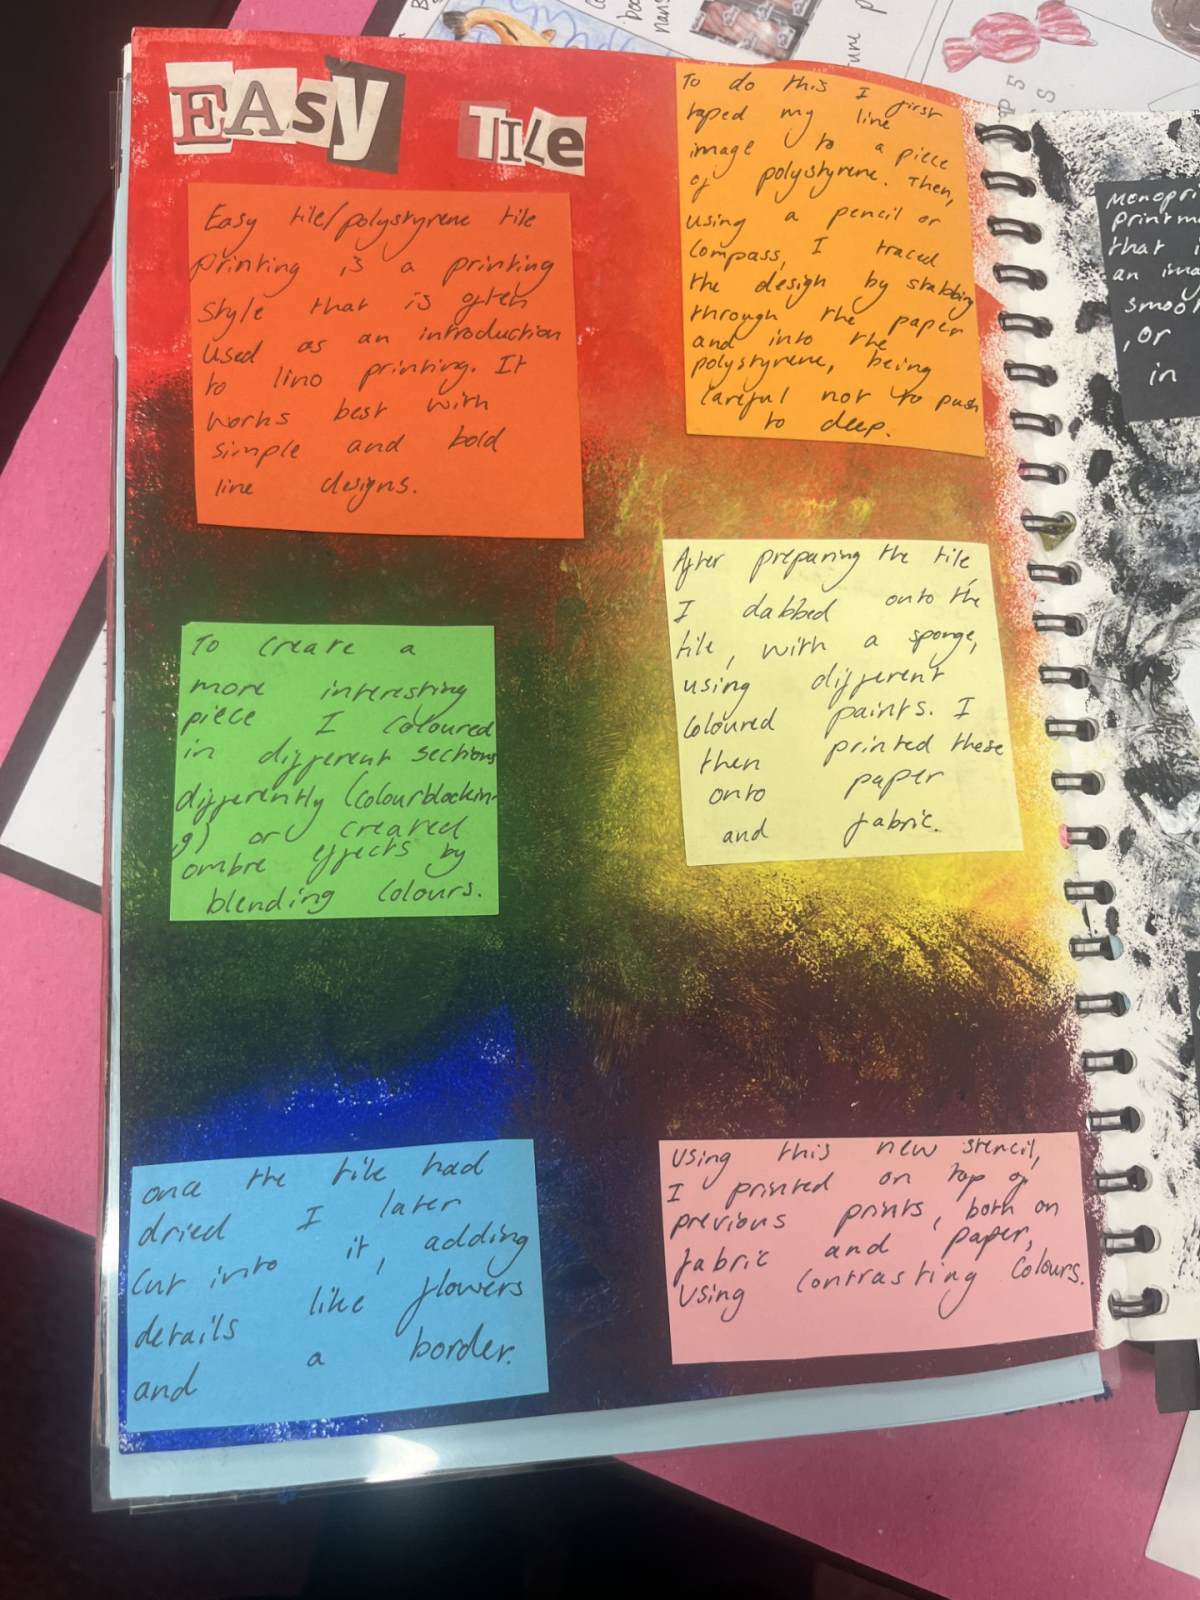 EAsy TILe
Easy tile/polystyrene tile
printing is a printing
style that is often
used as an introduction
to lino printing. It
works best with
simple and bold
line designs.
To do this I first
taped my line
image to a piece
of polystyrene. Then,
using a pencil or
compass, I traced
the design by stabbing
through the paper
and into the
polystyrene, being
careful not to push
to deep.
To create a
more interesting
piece I coloured
in different sections
differently (colourblockin-
g) or created
ombre effects by
blending colours.
After preparing the tile
I dabbed onto the
tile, with a sponge,
using different
coloured paints. I
then printed these
onto paper
and fabric.
once the tile had
dried I later
cut into it, adding
details like flowers
and a border.
Using this new stencil,
I printed on top of
previous prints, both on
fabric and paper,
using contrasting colours.
Monopri
printm
that i
an ima
smoo
, or
in